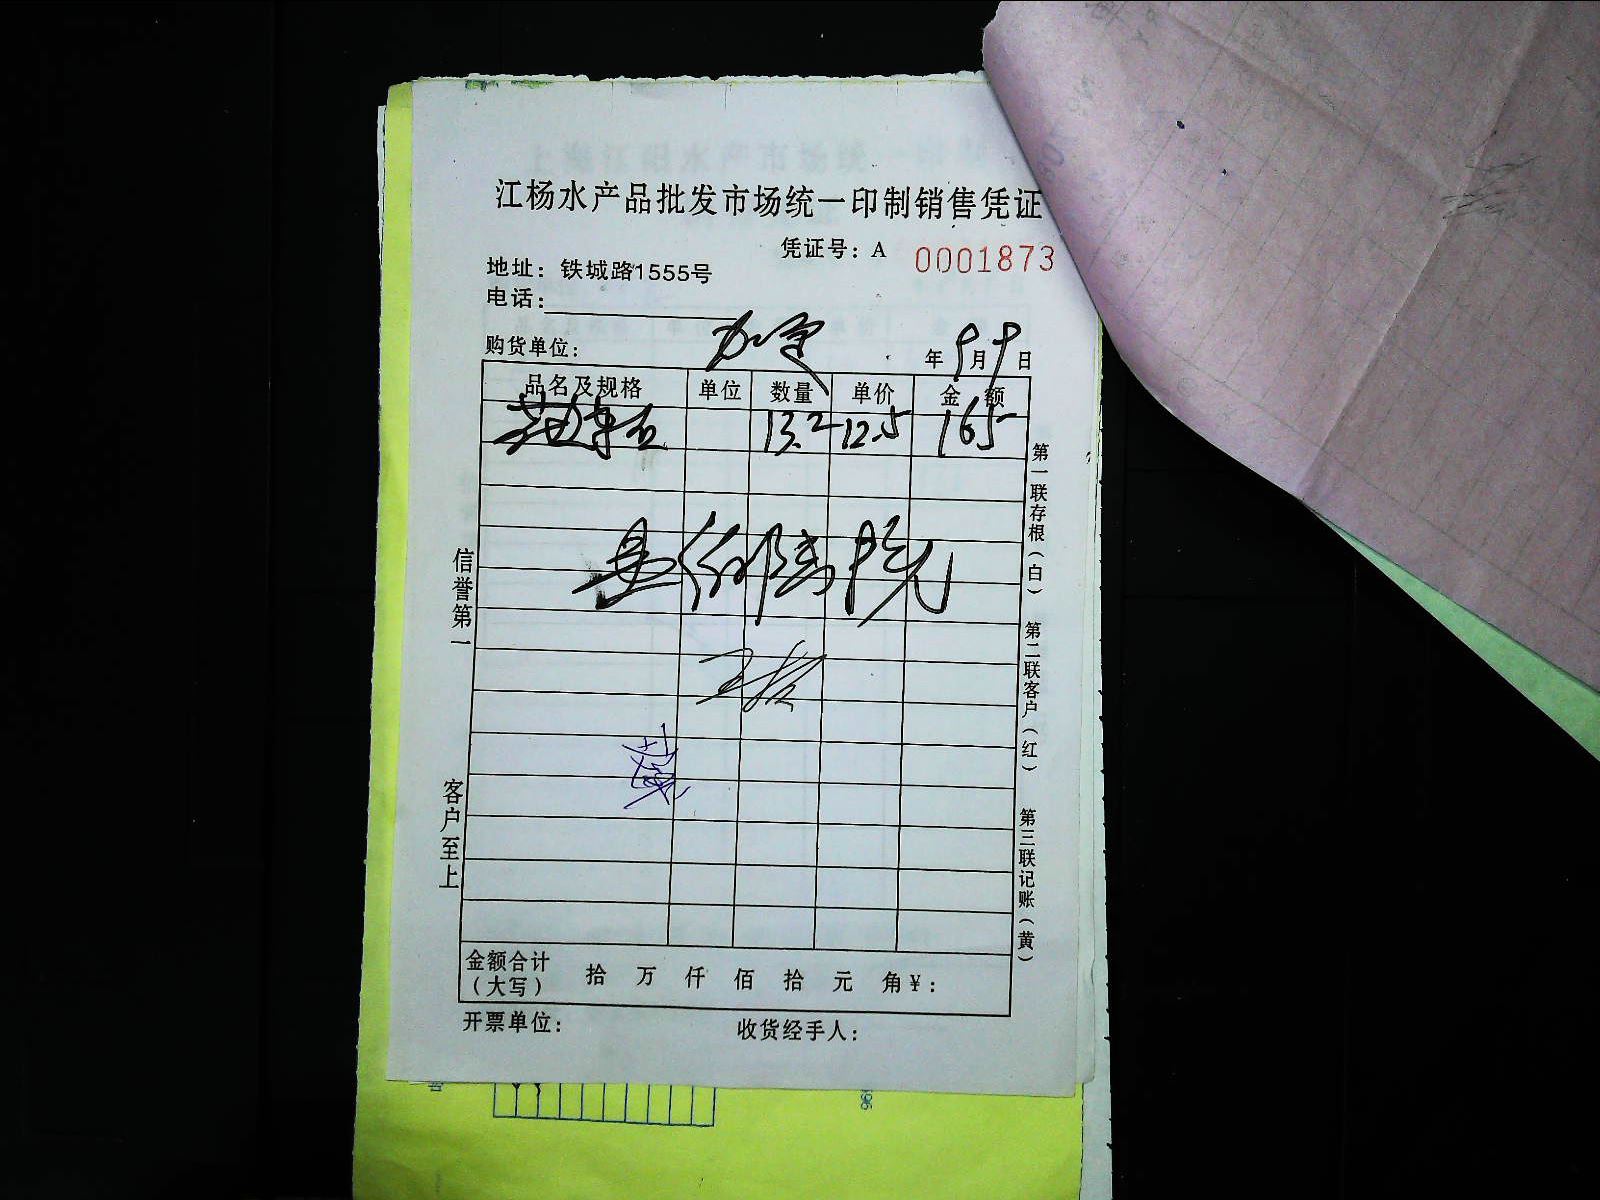 江杨水产品批发市场统一印制销售凭证
凭证号：A 0001873
地址：铁城路1555号
电话：
购货单位：
年9月9日
品名及规格 单位 数量 单价 金额
13.2 12.5 165
信誉第一
客户至上
第一联存根（白）
第二联客户（红）
第三联记账（黄）
金额合计
（大写）
拾 万 仟 佰 拾 元 角 ¥：
开票单位：
收货经手人：